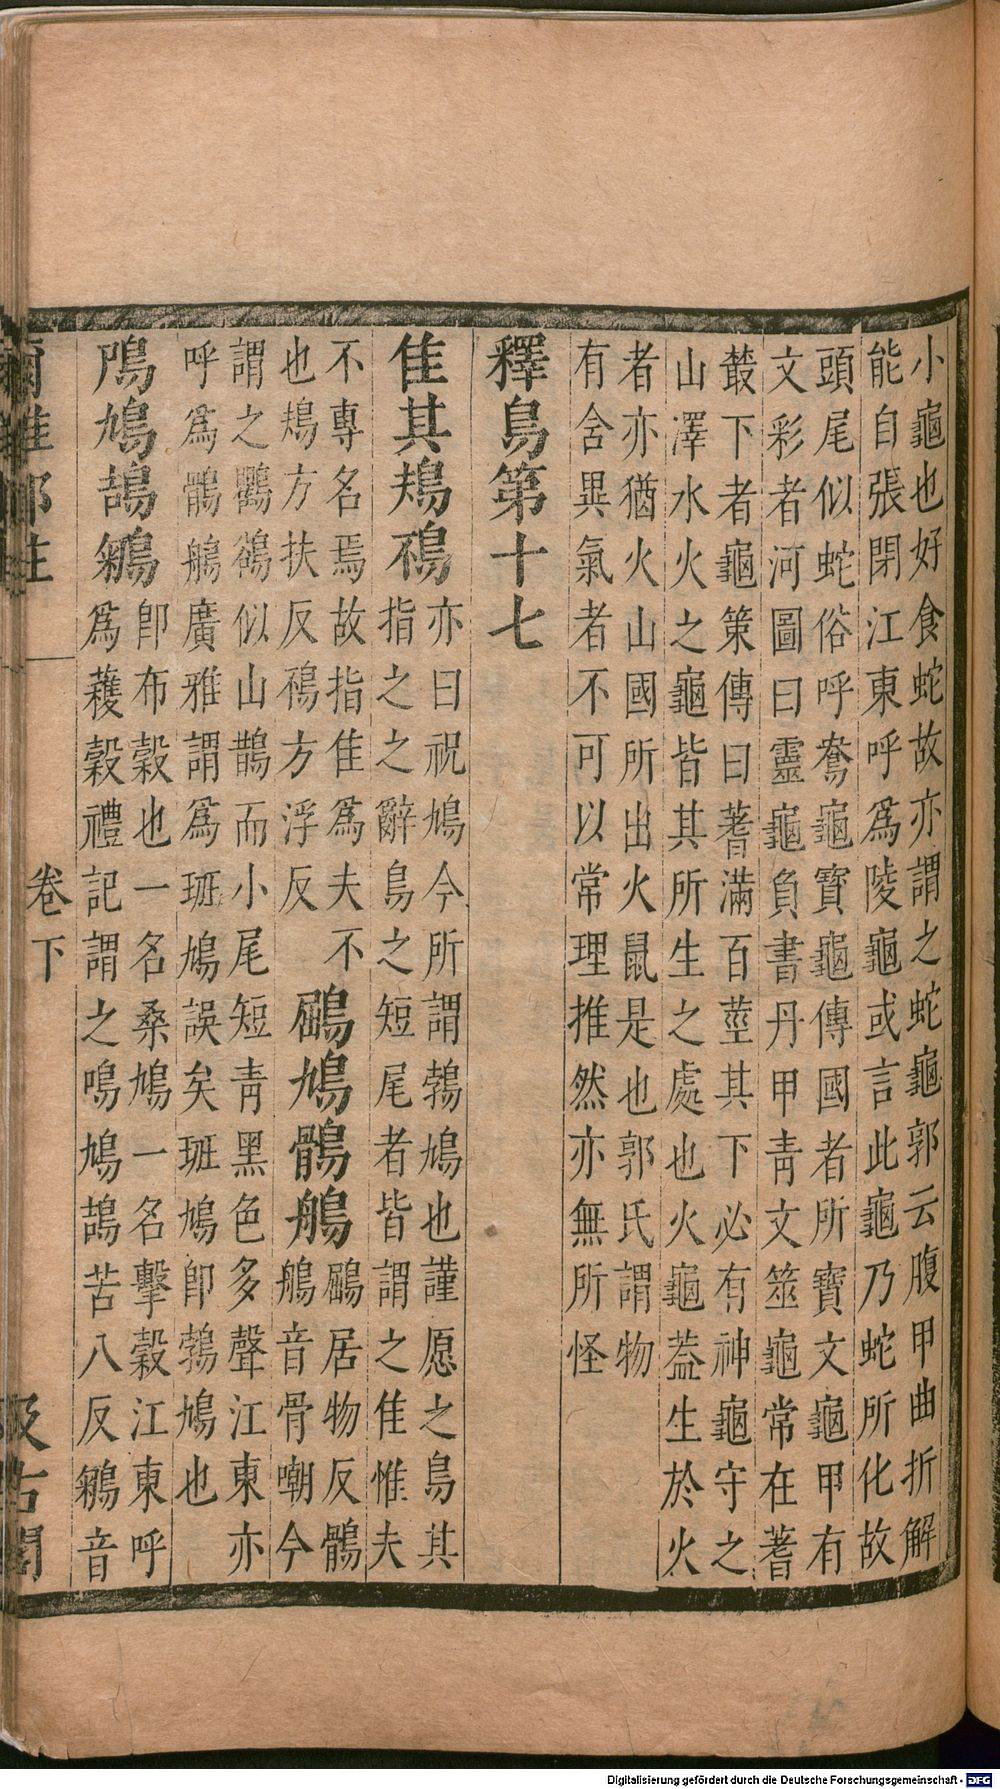 小龜也好食蛇故亦謂之蛇龜郭云腹甲曲折解
能自張閉江東呼爲陵龜或言此龜乃蛇所化故
頭尾似蛇俗呼鴦龜寶龜傳國者所寶文龜甲有
文彩者河圖曰靈龜負書丹甲青文筮龜常在蓍
叢下者龜策傳曰蓍滿百莖其下必有神龜守之
山澤水火之龜皆其所生之處也火龜葢生於火
者亦猶火山國所出火鼠是也郭氏謂物
有含異氣者不可以常理推然亦無所怪
釋鳥第十七
隹其鳺鴀
亦曰祝鳩今所謂鵓鳩也謹愿之鳥其
指之之辭鳥之短尾者皆謂之隹惟夫
不專名焉故指隹爲夫不
也鳺方扶反鴀方浮反
鶌鳩鶻鵃
鶌居物反鶻
鵃音骨嘲今
謂之鸜鵒似山鵲而小尾短青黑色多聲江東亦
呼爲鶻鵃廣雅謂爲班鳩誤矣班鳩卽鵓鳩也
鳲鳩鴶鵴
卽布穀也一名桑鳩一名擊穀江東呼
爲蒦穀禮記謂之鳴鳩鴶苦八反鵴音
爾雅鄭注
卷下
汲古閣
Digitalisierung gefördert durch die Deutsche Forschungsgemeinschaft - DFG